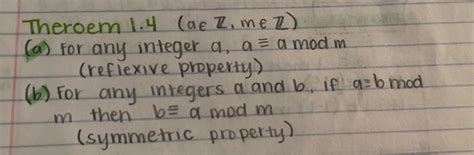 Theroem 1.4 (a∈ℤ, m∈ℤ)
(a) For any integer a, a ≡ a mod m
(reflexive property)
(b) For any integers a and b, if a≡b mod
m then b≡ a mod m
(symmetric property)